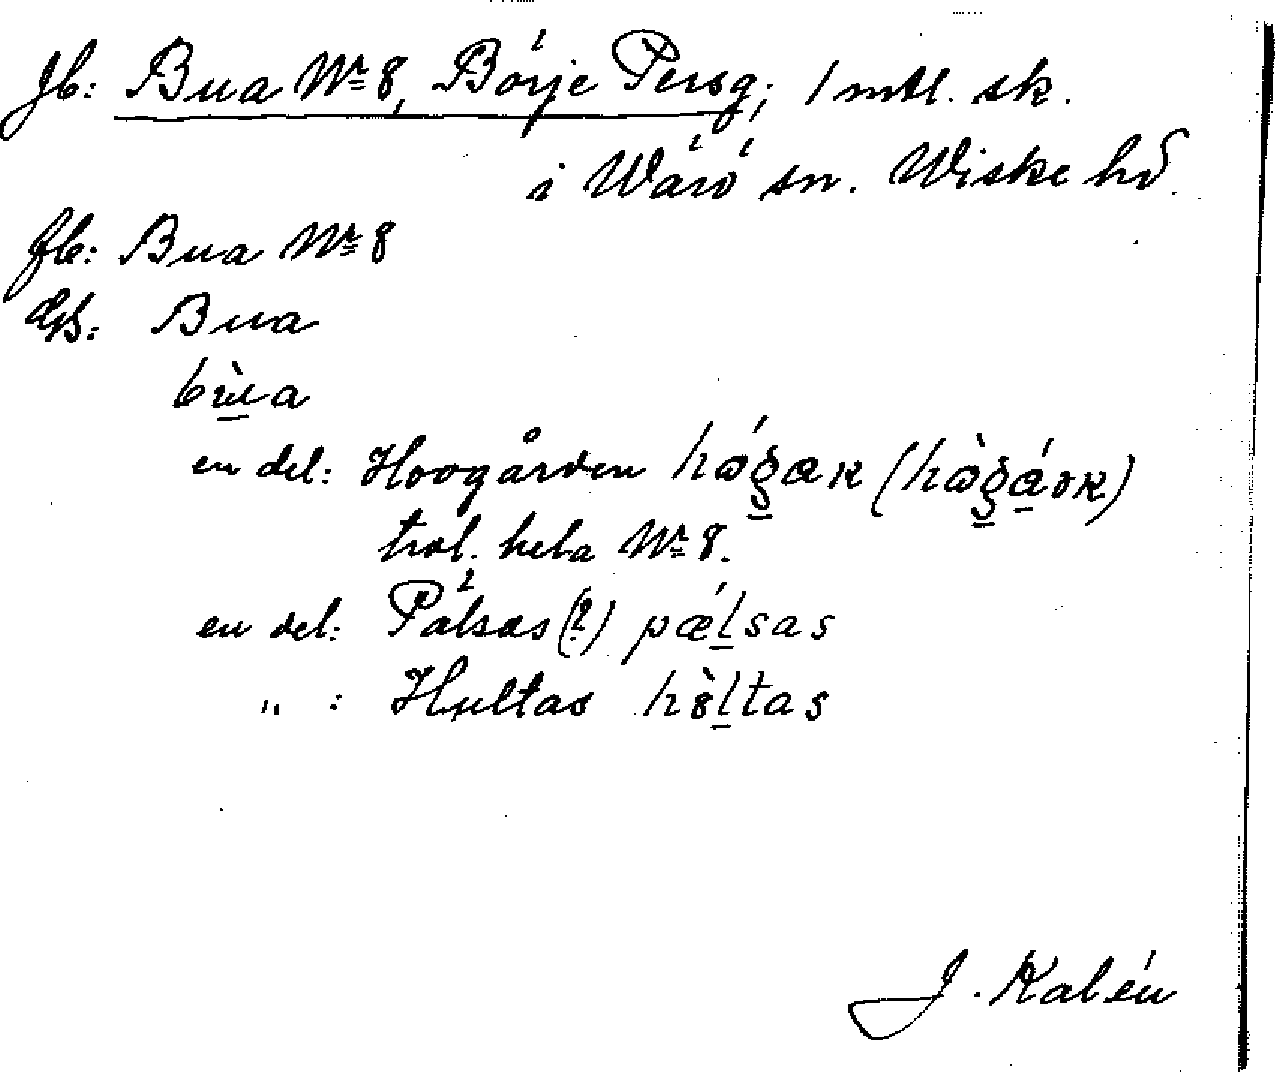 Jb: Bua Nr 8, Börje Persg; 1 mtl. sk.
i Wärö sn. Wiske hd.
Jb: Bua Nr 8
Gb: Bua
bùa
en del: Hovgården
trol. hela Nr 8.
en del: Pålsas (?) pǽlsas
" : Hultas hòltas
J. Kalén